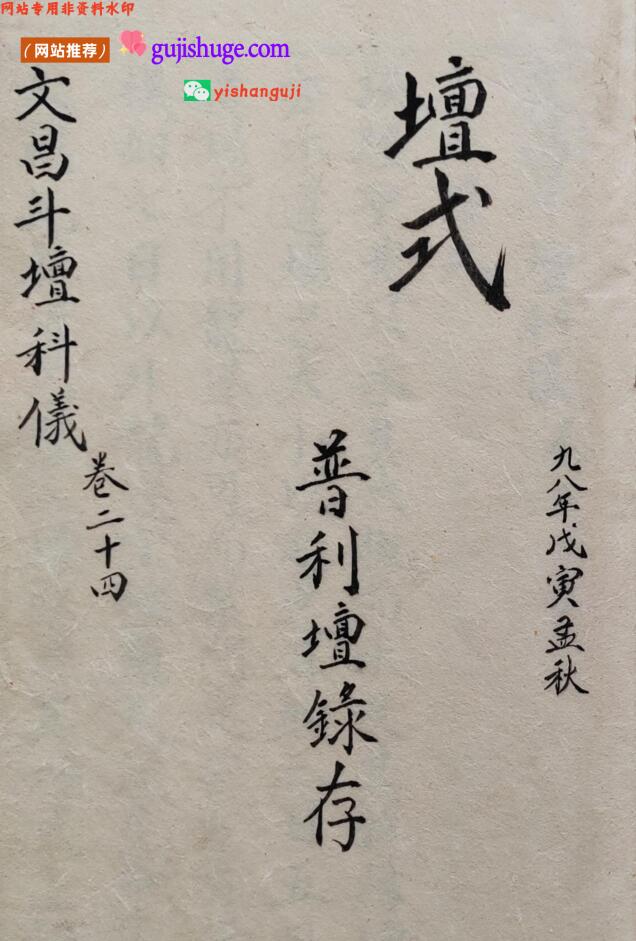 网站专用非资料水印
（网站推荐）
gujishuge.com
yishanguji
九八年戊寅孟秋
壇式
普利壇錄存
文昌斗壇科儀
卷二十四